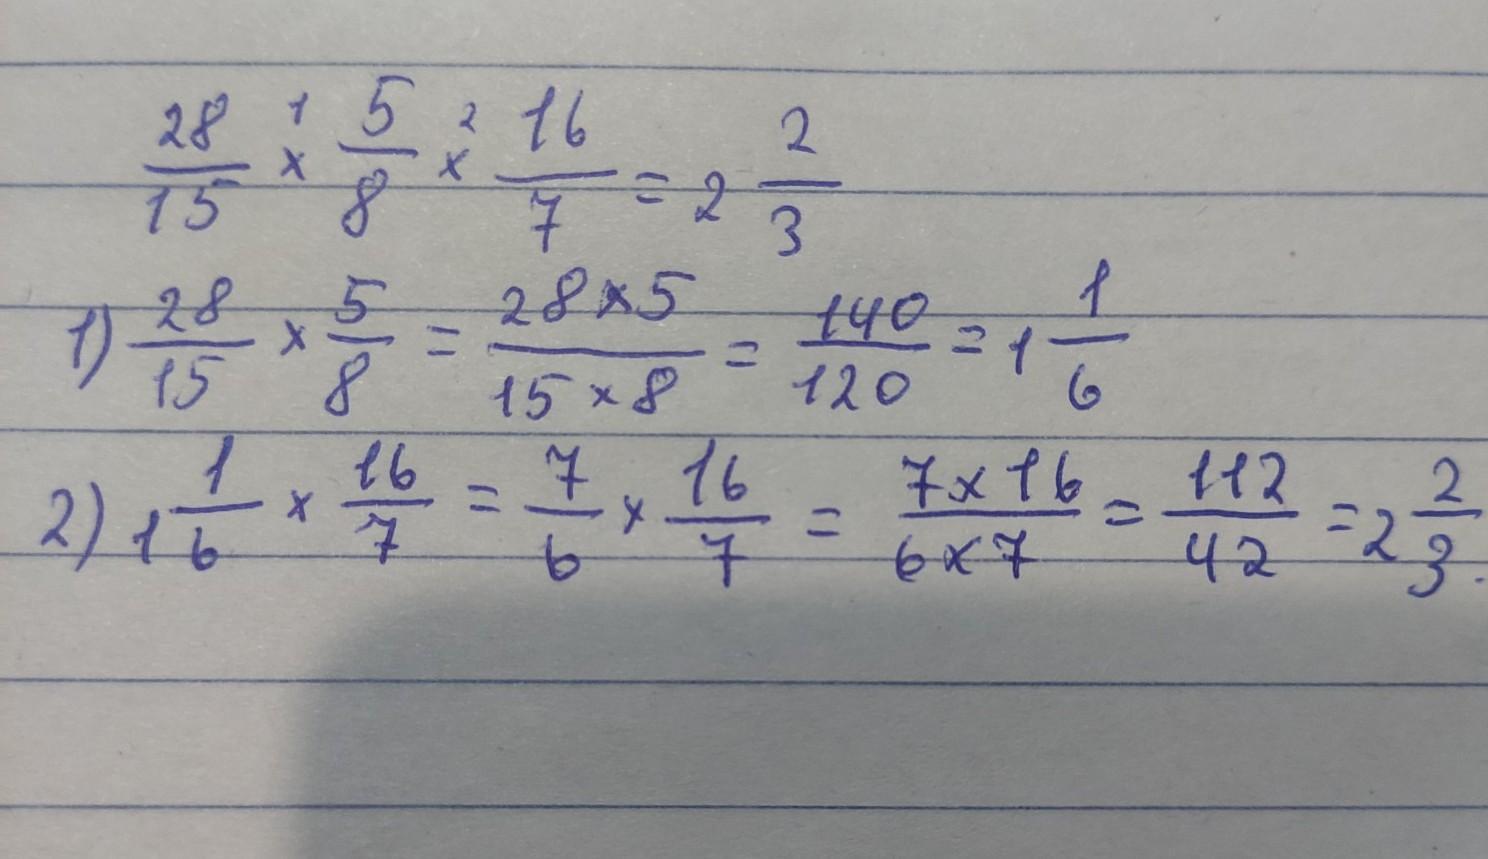 28/15 ×¹ 5/8 ×² 16/7 = 2 2/3
1) 28/15 × 5/8 = 28×5/15×8 = 140/120 = 1 1/6
2) 1 1/6 × 16/7 = 7/6 × 16/7 = 7×16/6×7 = 112/42 = 2 2/3.